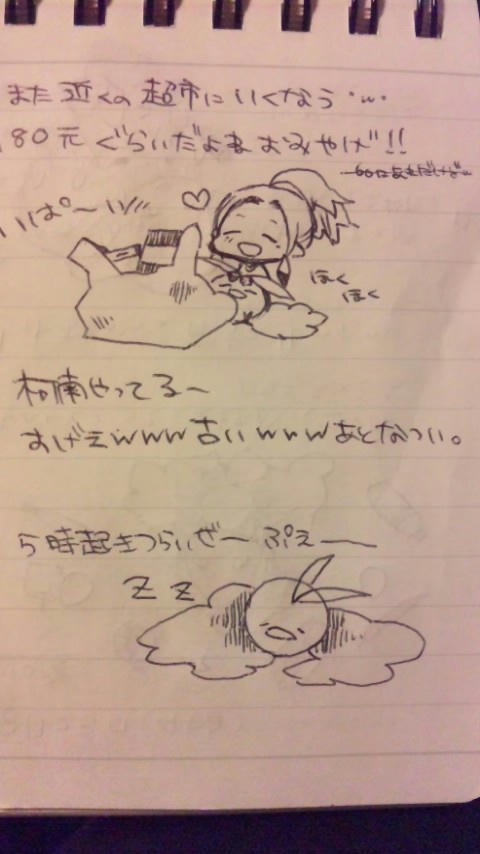 また近くの超市にいくなう・ω・
180元ぐらいだよねおみやげ!!
いぱ〜い///
ほく
ほく
柯南やってる〜
すげえwww古いwwwあとなつい。
5時起きつらいぜ〜 ぷえ──
z z